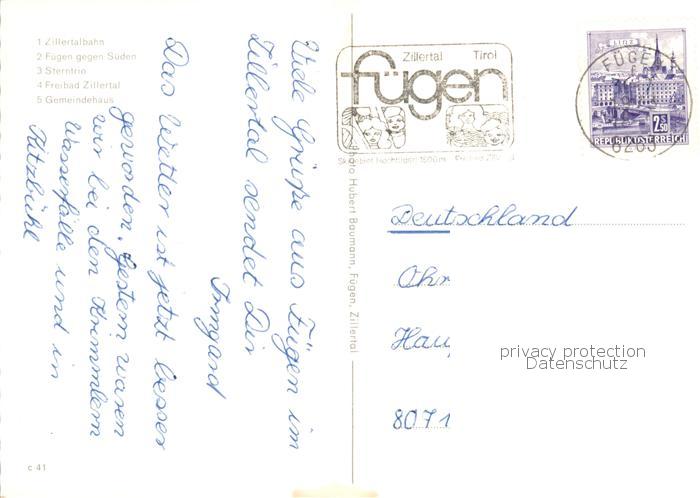 1 Zillertalbahn
2 Fügen gegen Süden
3 Sterntrio
4 Freibad Zillertal
5 Gemeindehaus
Viele Grüße aus Fügen im
Zillertal sendet Dir
Irmgard
Das Wetter ist jetzt besser
geworden. Gestern waren
wir bei den Krimmlern
Wasserfälle und in
Kitzbühl
c 41
Photo Hubert Baumann, Fügen, Zillertal
Zillertal Tirol
fügen
Skigebiet Hochfügen 1500 m
LINZ
2.50
REPUBLIK ÖSTERREICH
FÜGEN
Deutschland
Ohr
Hau
8071
privacy protection
Datenschutz